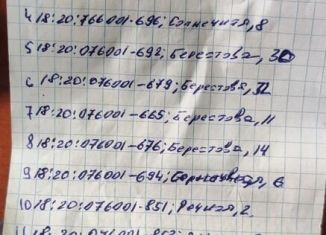 4 18:20:766001-696; Солнечная, 8
5 18:20:076001-692; Берестова, 30
6 18:20:076001-679; Берестова, 32
7 18:20:076001-665; Берестова, 11
8 18:20:076001-676; Берестова, 14
9 18:20:076001-694; 6
10 18:20:076001-851; Речная, 2.
11 18:20:076001-